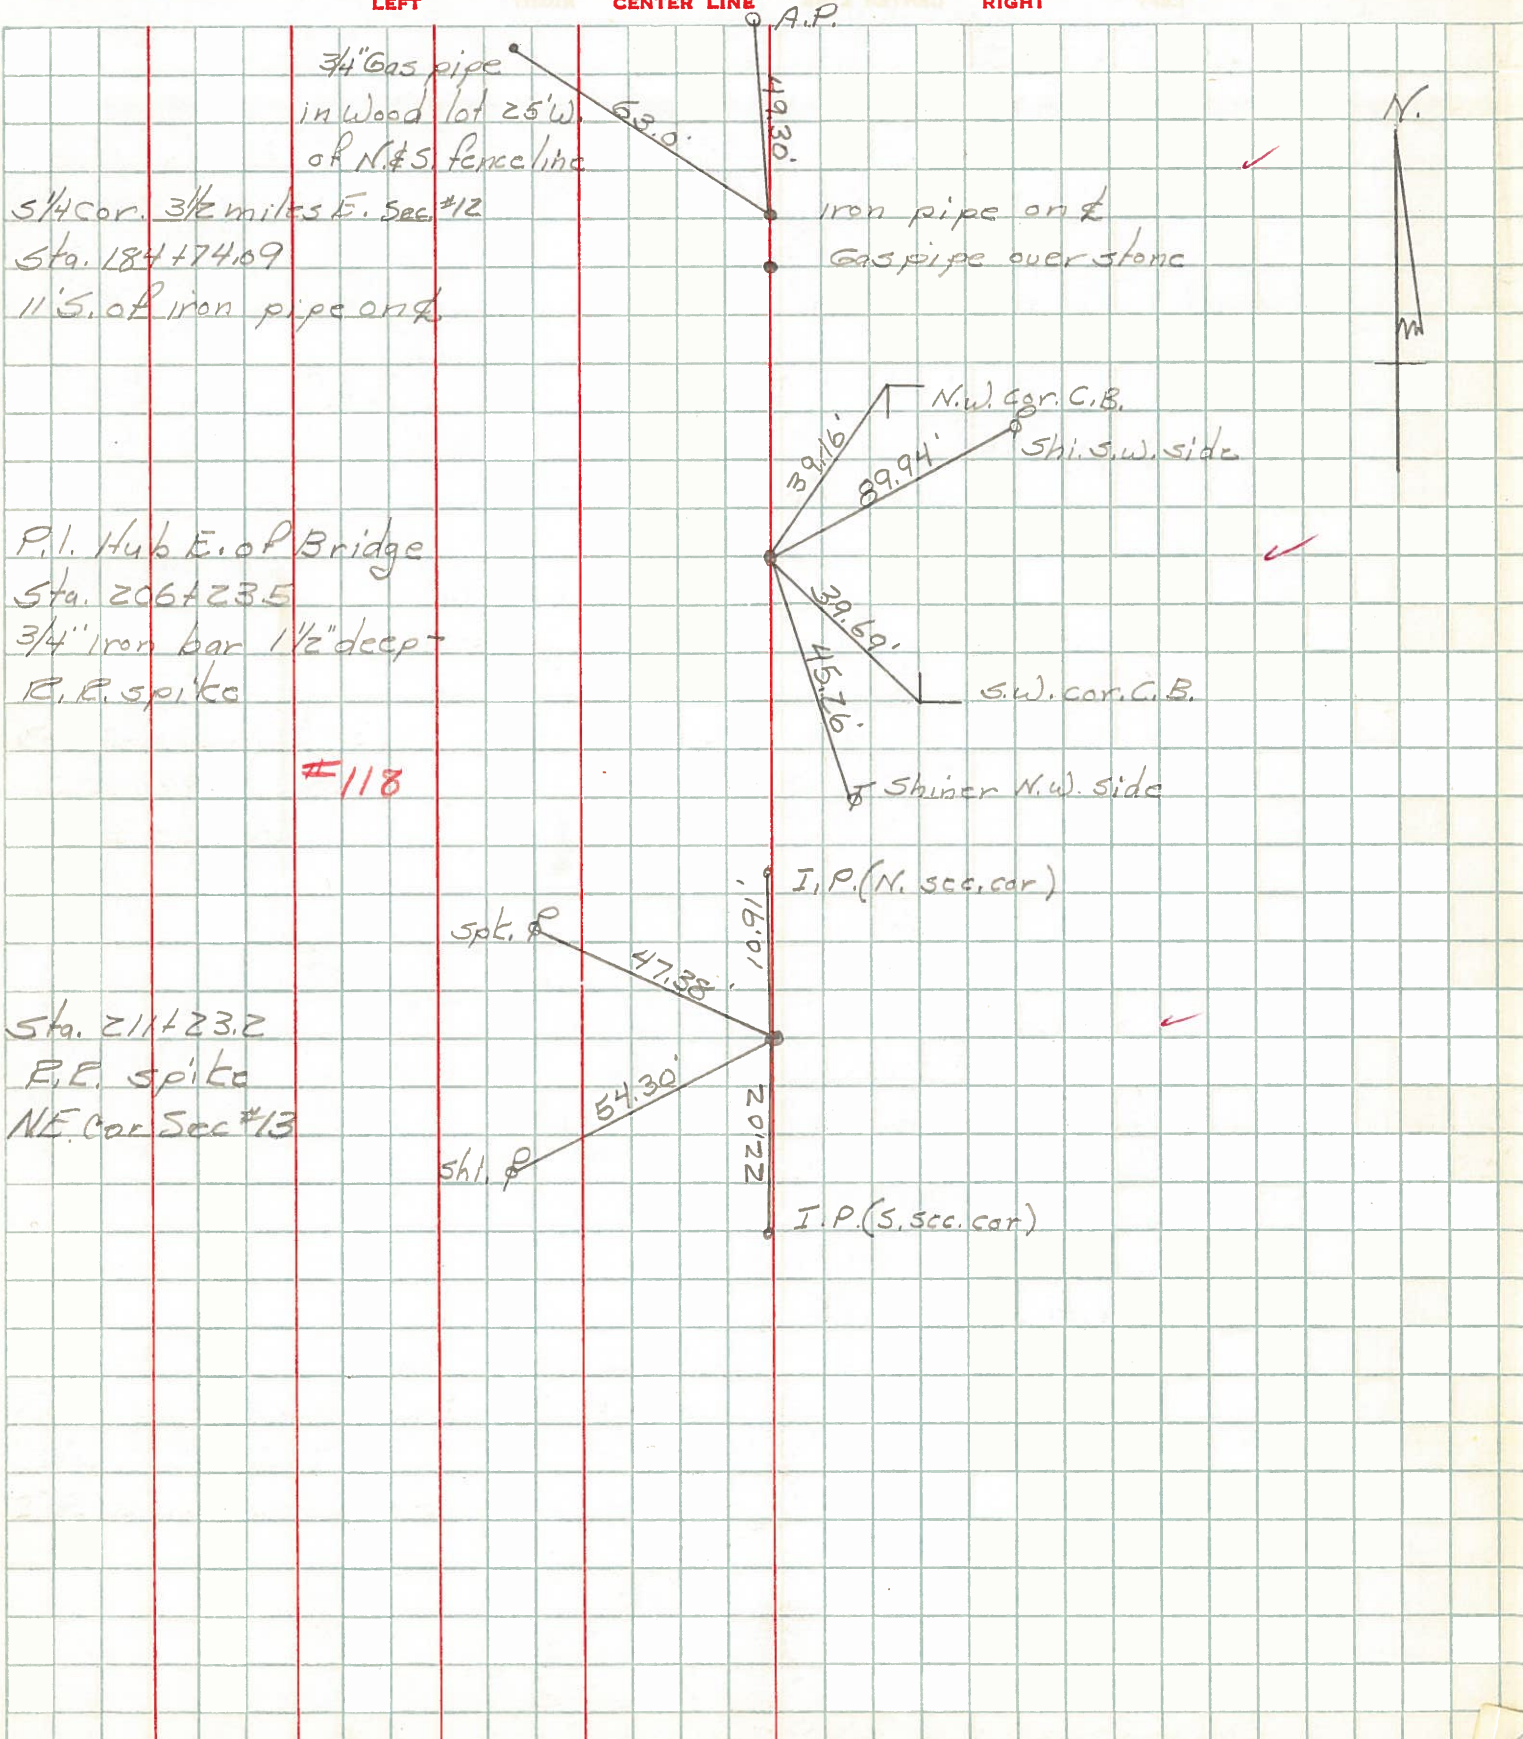 LEFT CENTER LINE RIGHT
A.P.
3/4" Gas pipe
in Wood lot 25' W.
of N.&S. fence line
53.0'
49.30'
N.
S 1/4 Cor. 3 1/2 miles E. Sec. #12
Sta. 184+74.09
11' S. of iron pipe on ℄
Iron pipe on ℄
Gas pipe over stone
N.W. Cor. C.B.
Shi. S.W. side
39.16'
89.94'
P.I. Hub E. of Bridge
Sta. 206+23.5
3/4" iron bar 1 1/2" deep-
R.R. spike
39.69'
45.76'
S.W. cor. C.B.
Shiner N.W. side
#118
I.P. (N. sec. cor)
10.91'
spk.
47.38'
Sta. 211+23.2
R.R. spike
NE. Cor Sec #13
54.30'
20.22
shi.
I.P. (S. sec. cor)